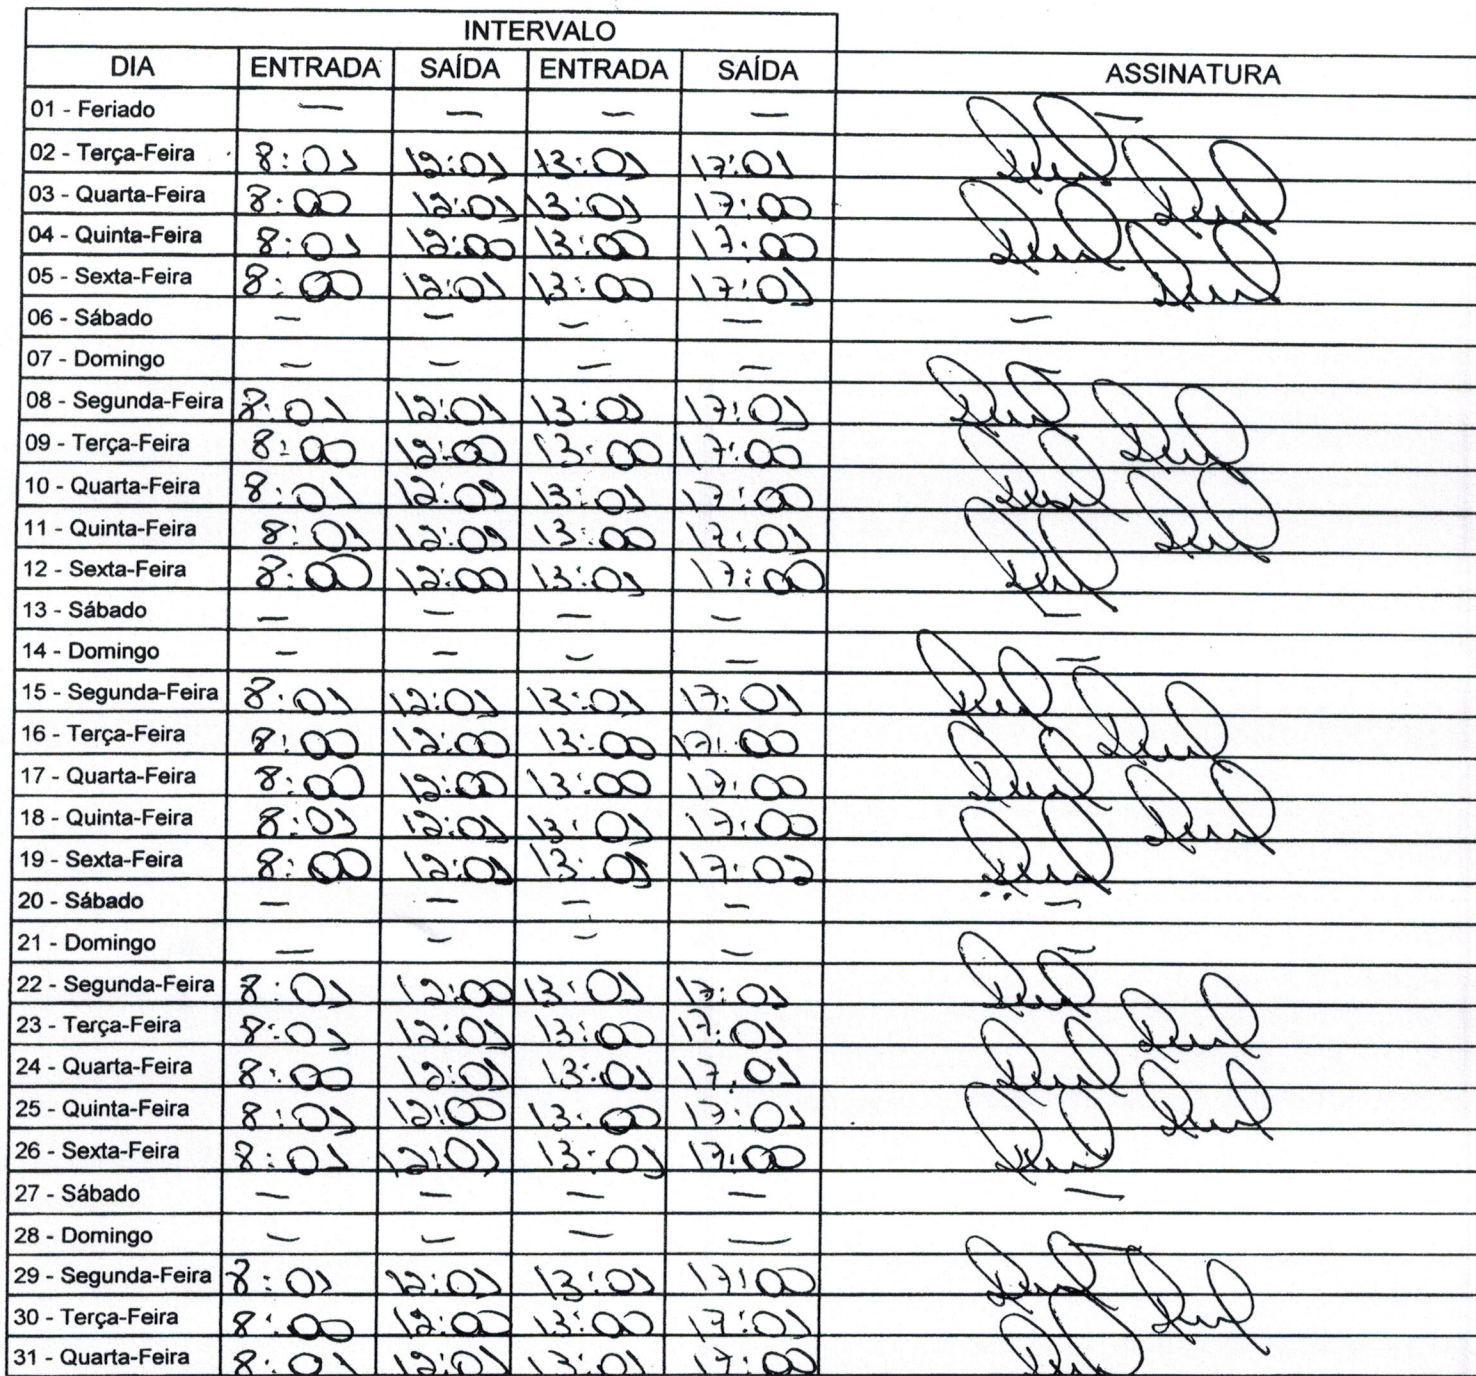 INTERVALO
DIA ENTRADA SAÍDA ENTRADA SAÍDA ASSINATURA
01 - Feriado — — — — —
02 - Terça-Feira 8:01 12:01 13:01 17:01
03 - Quarta-Feira 8:00 12:01 13:01 17:00
04 - Quinta-Feira 8:01 12:00 13:00 17:00
05 - Sexta-Feira 8:00 12:01 13:00 17:01
06 - Sábado — — — — —
07 - Domingo — — — — —
08 - Segunda-Feira 8:01 12:01 13:01 17:01
09 - Terça-Feira 8:00 12:00 13:00 17:00
10 - Quarta-Feira 8:01 12:01 13:01 17:00
11 - Quinta-Feira 8:01 12:01 13:00 17:01
12 - Sexta-Feira 8:00 12:00 13:01 17:00
13 - Sábado — — — — —
14 - Domingo — — — — —
15 - Segunda-Feira 8:01 12:01 13:01 17:01
16 - Terça-Feira 8:00 12:00 13:00 17:00
17 - Quarta-Feira 8:00 12:00 13:00 17:00
18 - Quinta-Feira 8:01 12:01 13:01 17:00
19 - Sexta-Feira 8:00 12:01 13:01 17:02
20 - Sábado — — — — —
21 - Domingo — — — — —
22 - Segunda-Feira 8:01 12:00 13:01 17:01
23 - Terça-Feira 8:01 12:01 13:00 17:01
24 - Quarta-Feira 8:00 12:01 13:01 17:01
25 - Quinta-Feira 8:01 12:00 13:00 17:01
26 - Sexta-Feira 8:01 12:01 13:01 17:00
27 - Sábado — — — — —
28 - Domingo — — — — —
29 - Segunda-Feira 8:01 12:01 13:01 17:00
30 - Terça-Feira 8:00 12:00 13:00 17:01
31 - Quarta-Feira 8:01 12:01 13:01 17:00